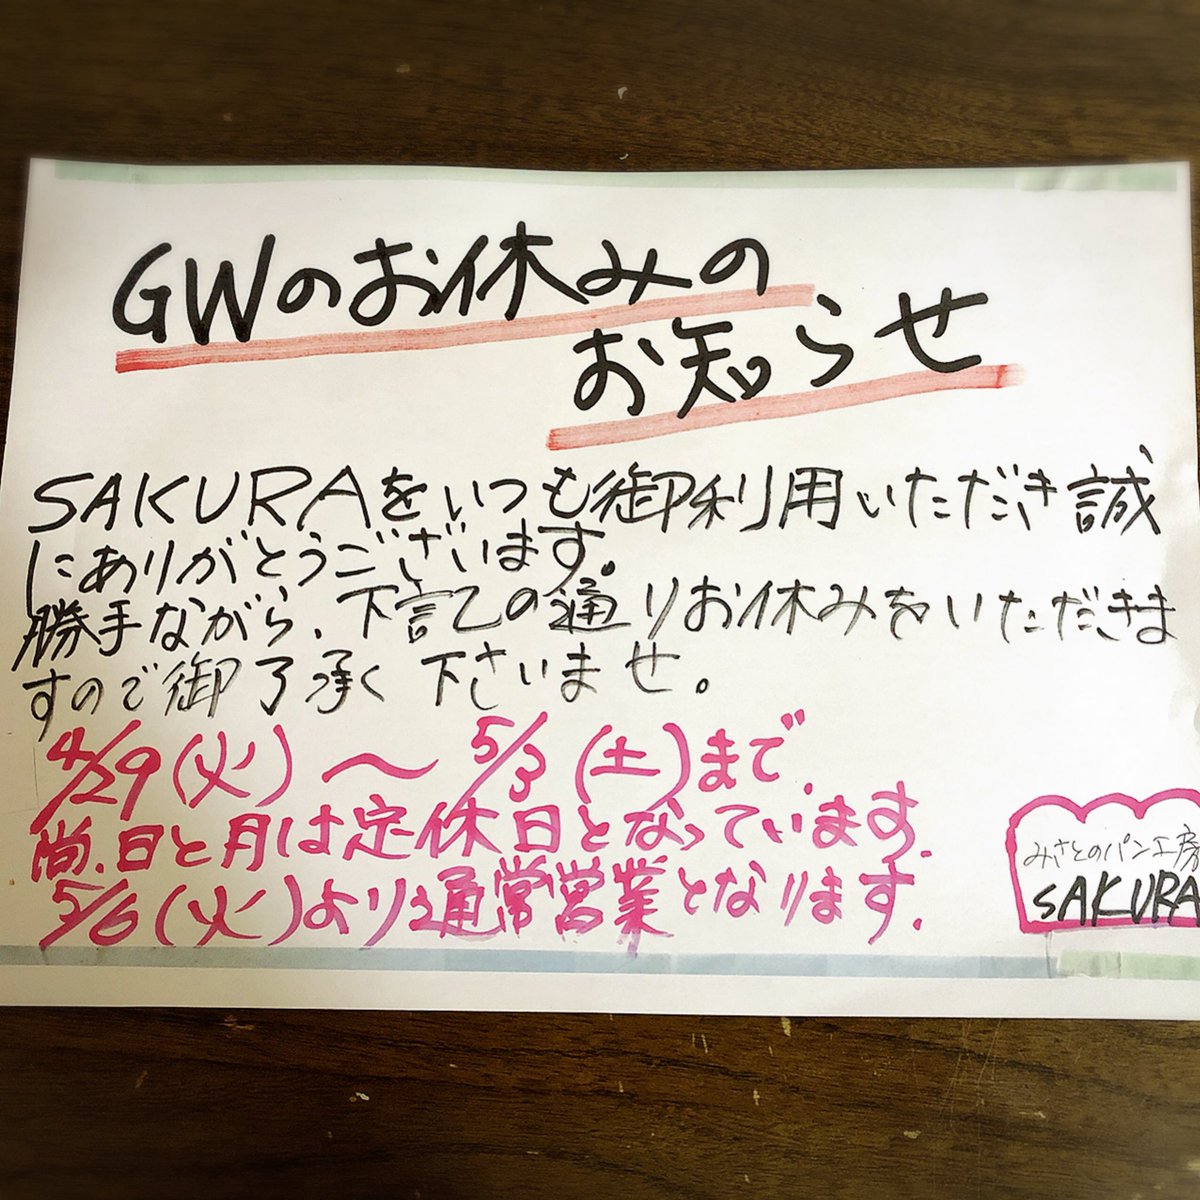 GWのお休みの
お知らせ
SAKURAをいつも御利用いただき誠
にありがとうございます。
勝手ながら、下記の通りお休みをいただきま
すので御了承く下さいませ。
4/29(火)〜5/3(土)まで.
尚、日と月は定休日となっています.
5/6(火)より通常営業となります.
みさとのパン工房
SAKURA